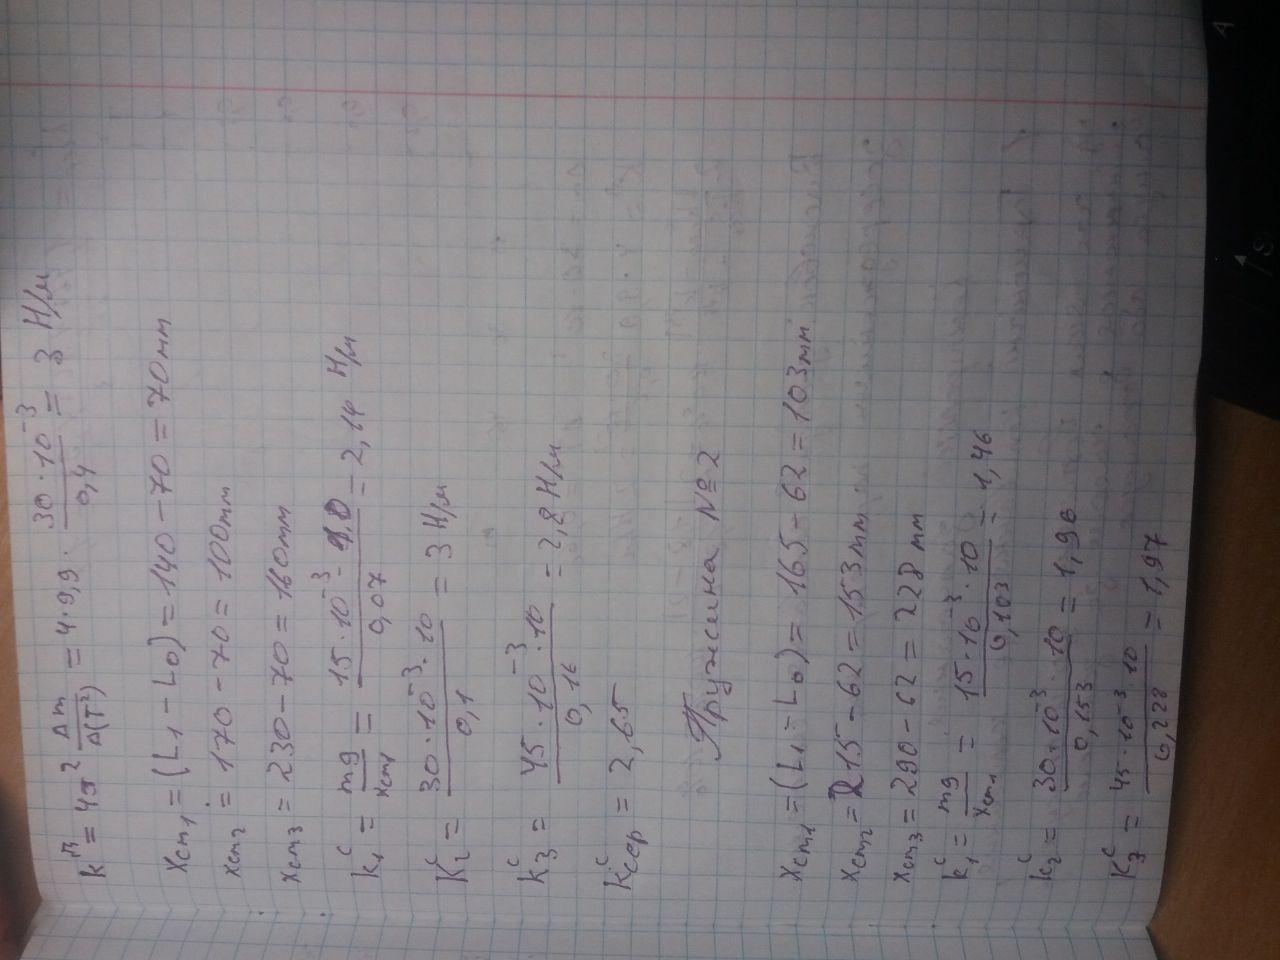 k^д = 4π² Δm/Δ(T²) = 4·9,9· 30·10⁻³/0,4 = 3 Н/м
Xст1 = (L1 - L0) = 140 - 70 = 70мм
Xст2 = 170 - 70 = 100мм
Xст3 = 230 - 70 = 160мм
k₁^с = mg/Xст1 = 15·10⁻³·9,8/0,07 = 2,14 Н/м
K₂^с = 30·10⁻³·10/0,1 = 3 Н/м
K₃^с = 45·10⁻³·10/0,16 = 2,8 Н/м
K^с сер = 2,65
Пружина №2
Xст1 = (L1 - L0) = 165 - 62 = 103мм
Xст2 = 215 - 62 = 153мм
Xст3 = 290 - 62 = 228мм
k₁^с = mg/Xст1 = 15·10⁻³·10/0,103 = 1,46
k₂^с = 30·10⁻³·10/0,153 = 1,96
K₃^с = 45·10⁻³·10/0,228 = 1,97